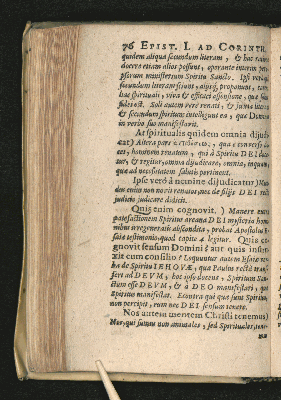 76 EPIST. I. AD CORINTH.
quidem aliqua secundum literam, & hoc
docere etiam alios possunt, operante interim per
ipsorum ministerium Spiritu Sancto. Ipsi vero
secundum literam sciunt,
spirituali, viva & efficaci
est. Soli autem vere renati, & juxta literam
& secundum spiritum intelligunt ea, quæ Deus
in verbo suo manifestavit.
At spiritualis quidem omnia dijudi-
cat) Altera pars
cet, hominem renatum, qui à Spiritu DEI doce-
tur, & regitur, omnia dijudicare, omnia, inquam,
quæ ad necessitatem salutis pertinent.
Ipse verò à nemine dijudicatur)
enim non renatos, nec de filijs DEI
judicio judicare debeit.
Quis enim cognovit.) Manere
patefactionem Spiritus arcana DEI mysteria
nibus irregeneratis abscondita, probat Apostolus
saiæ testimonio, quod capite 4 legitur. Quis co-
gnovit sensum Domini? aut quis
xit eum consilio? Loquuntur autem Isaiæ ver-
ba de Spiritu IEHOVÆ, quæ Paulus rectè
fert ad DEUM, hoc ipso docens, Spiritum San-
ctum esse DEUM, & à DEO manifestari, quæ
Spiritus manifestat. Econtra qui quæ sunt Spiritus
non percipit, eum nec DEI sensum tenere.
Nos autem mentem Christi tenemus)
Nos, qui sumus non animales, sed Spirituales,